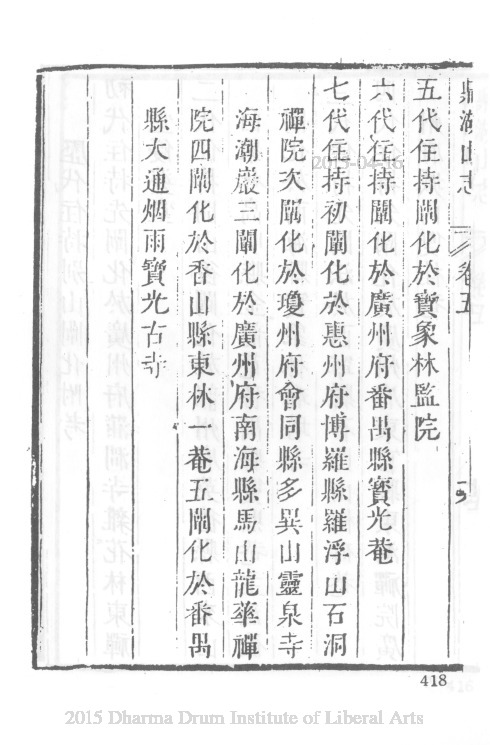 鼎湖山志 卷五
五代住持闡化於寶象林監院
六代住持闡化於廣州府番禺縣寶光菴
七代住持初闡化於惠州府博羅縣羅浮山石洞
禪院次闡化於瓊州府會同縣多異山靈泉寺
海潮巖三闡化於廣州府南海縣馬山龍華禪
院四闡化於香山縣東林一菴五闡化於番禺
縣大通烟雨寶光古寺
2015-04-16
418
2015 Dharma Drum Institute of Liberal Arts